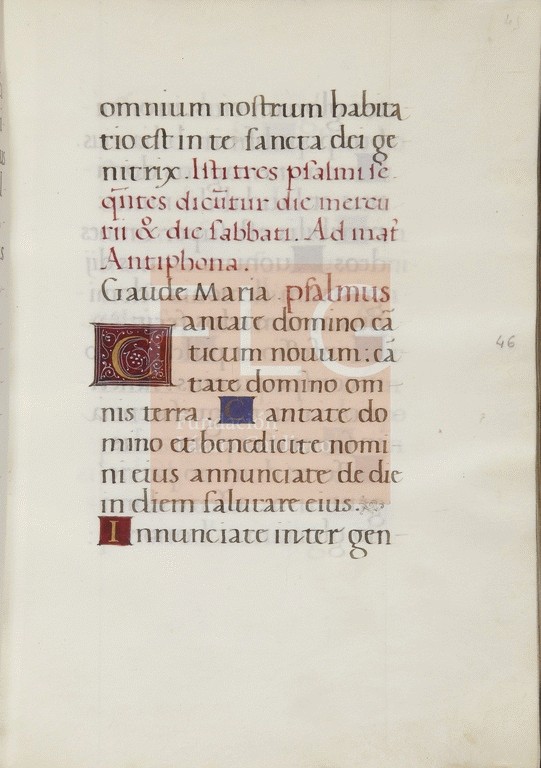 41
omnium noſtrum habita
tio est in te ſancta dei ge
nitrix. Iſti tres pſalmi ſe
q̄ntes dicūtur die mercu
rii & die ſabbati. Ad mat̄
Antiphona.
Gaude Maria. pſalmus
Cantate domino cā
ticum novum: cā
tate domino om
nis terra. Cantate do
mino et benedicite nomi
ni eius annunciate de die
in diem ſalutare eius.
Innunciate inter gen
46
FLG
Fundación